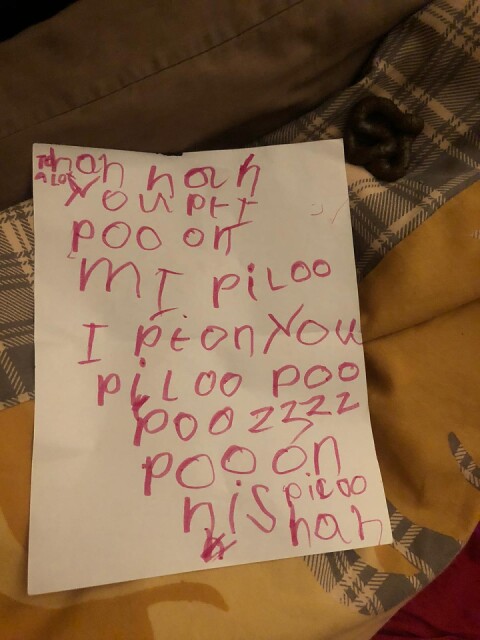 hah hah
You PtI
Poo on
MI PiLoo
I Pt on You
PiLoo Poo
Poo zzzz
Poo on
hiS PiLoo
hah